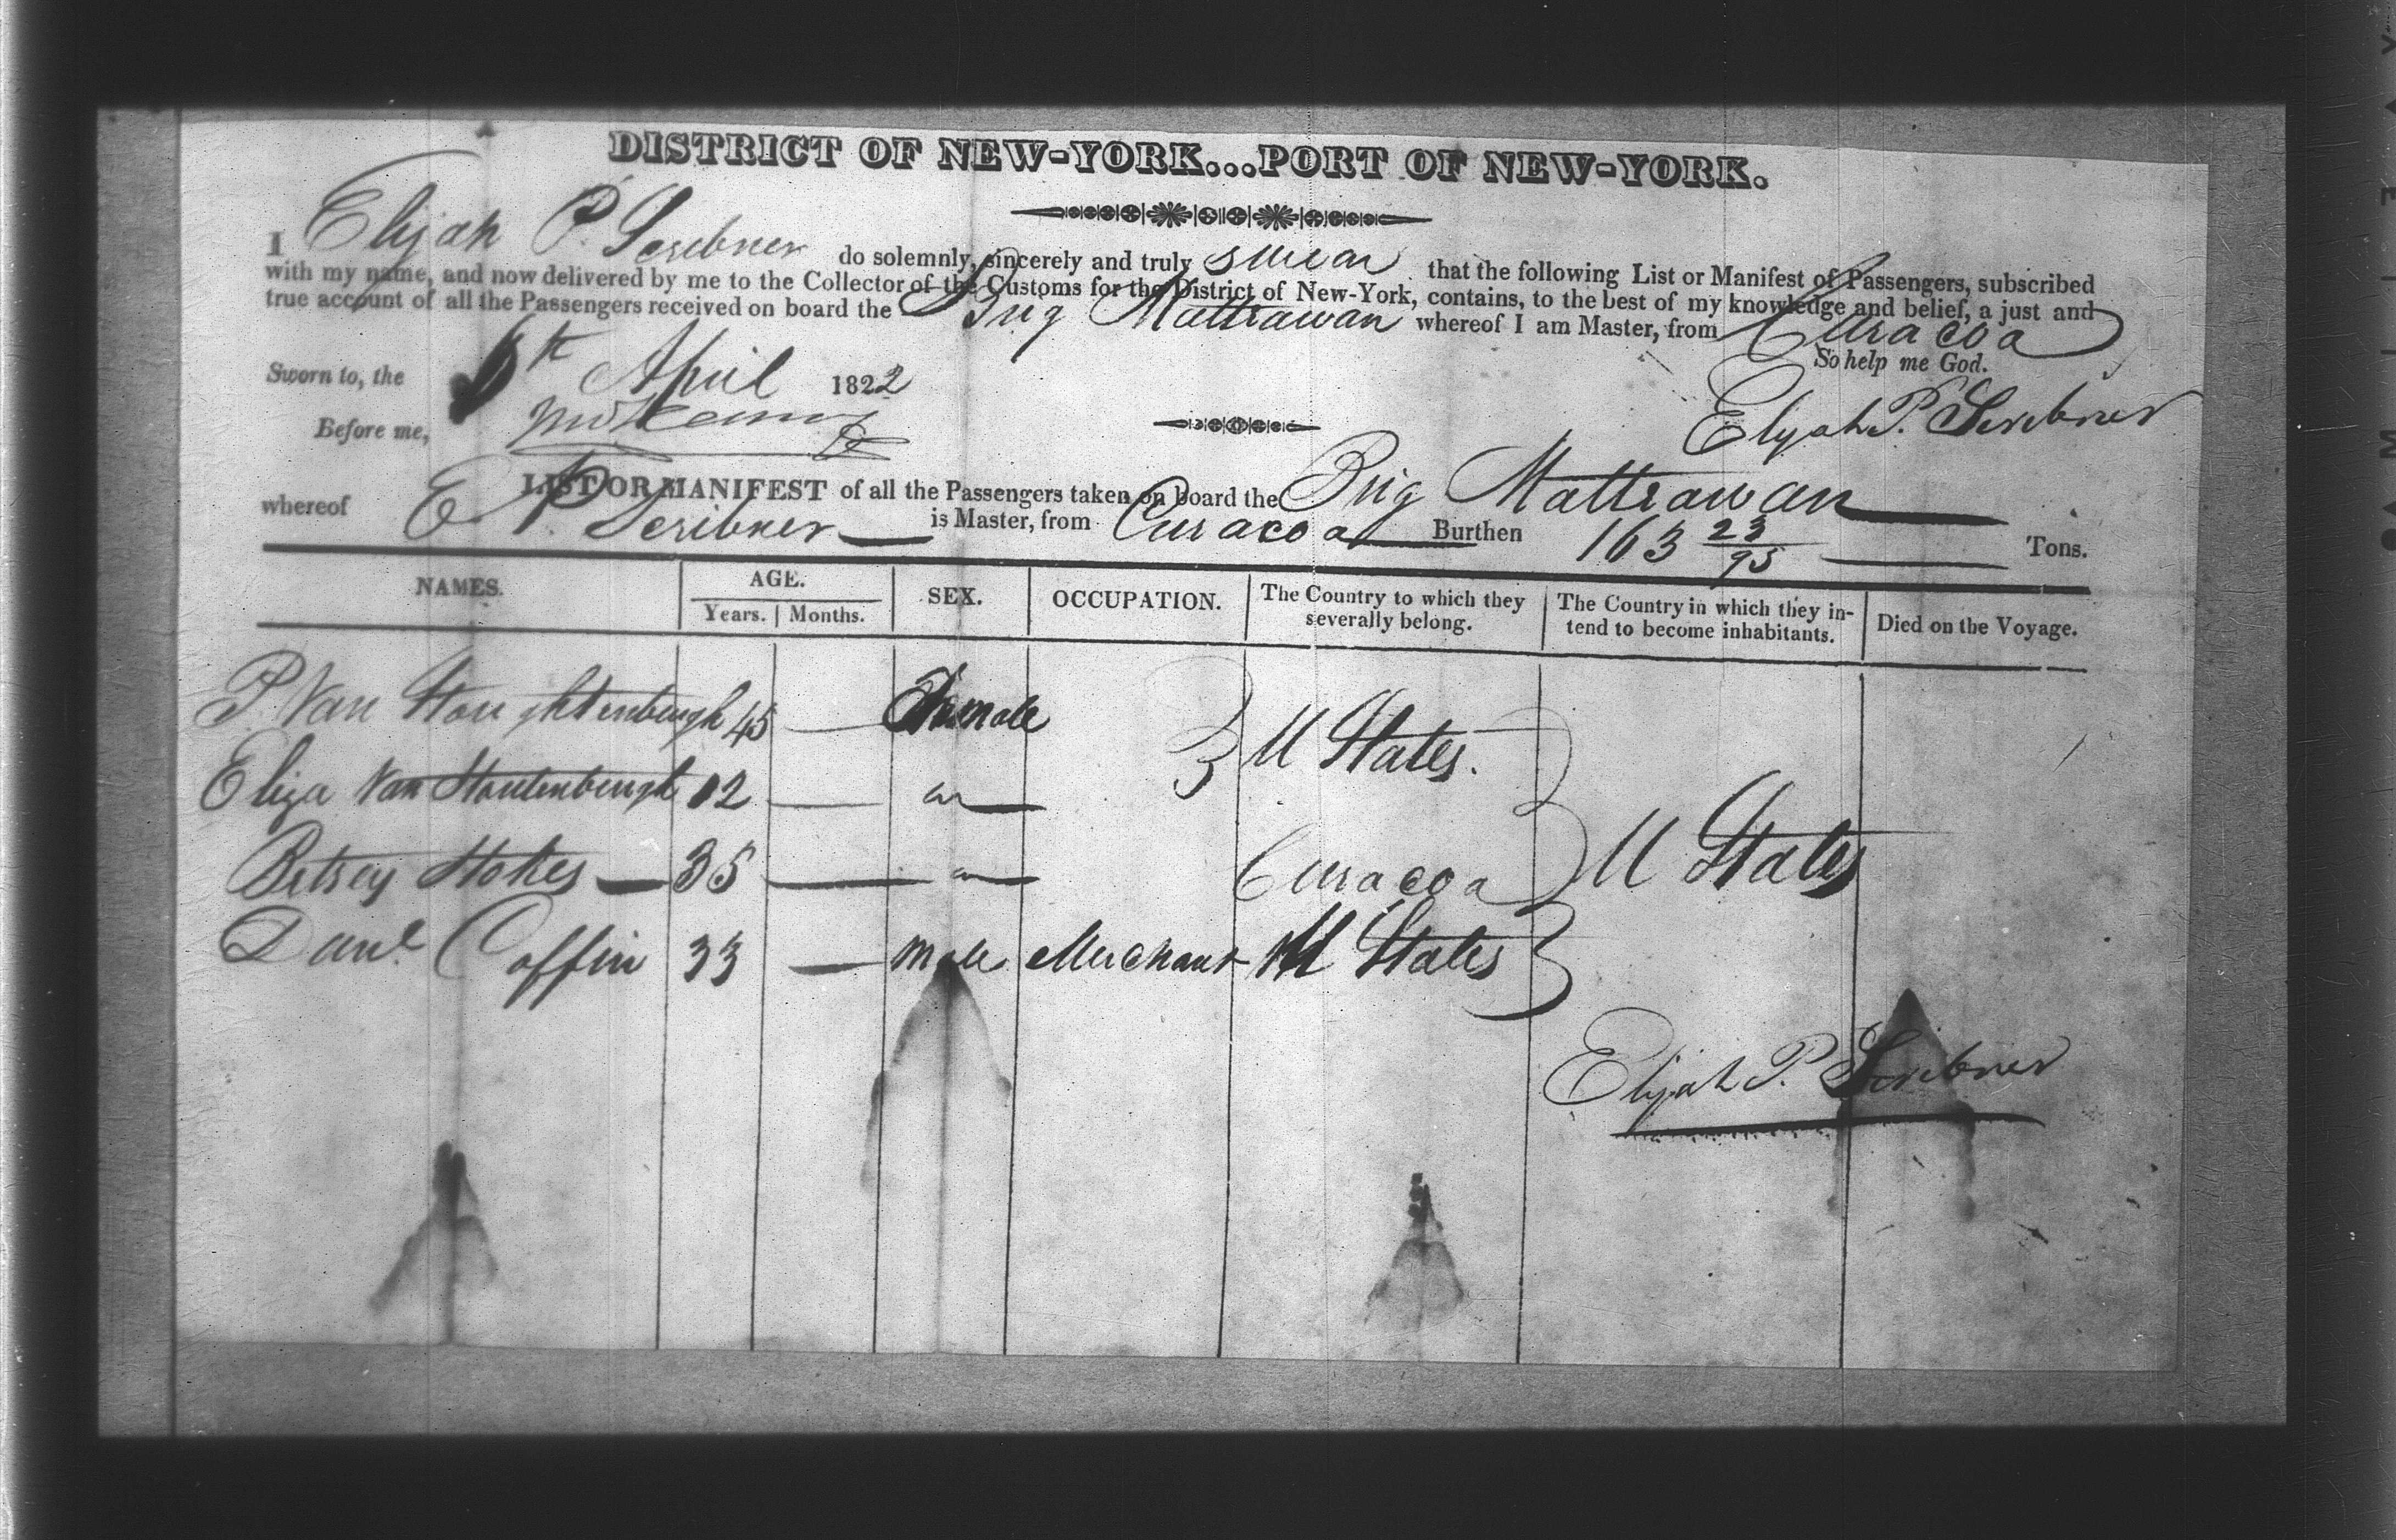 DISTRICT OF NEW-YORK...PORT OF NEW-YORK.
I Elijah P. Scribner do solemnly, sincerely and truly swear that the following List or Manifest of Passengers, subscribed
with my name, and now delivered by me to the Collector of the Customs for the District of New-York, contains, to the best of my knowledge and belief, a just and
true account of all the Passengers received on board the Brig Mattrawan whereof I am Master, from Curacoa
So help me God.
Sworn to, the th April 1822
Elijah P. Scribner
Before me,
LIST OR MANIFEST of all the Passengers taken on board the Brig Mattrawan
whereof E P. Scribner is Master, from Curacoa Burthen 163 23/95 Tons.
NAMES. AGE. Years. Months. SEX. OCCUPATION. The Country to which they severally belong. The Country in which they intend to become inhabitants. Died on the Voyage.
P. Van Houghtenburgh 45 — Female U States.
Eliza Van Stoutenburgh 12 —
Betsey Stokes — 35 — Curacoa U States
Danl Coffin 33 — male Merchant U States
Elijah P. Scribner